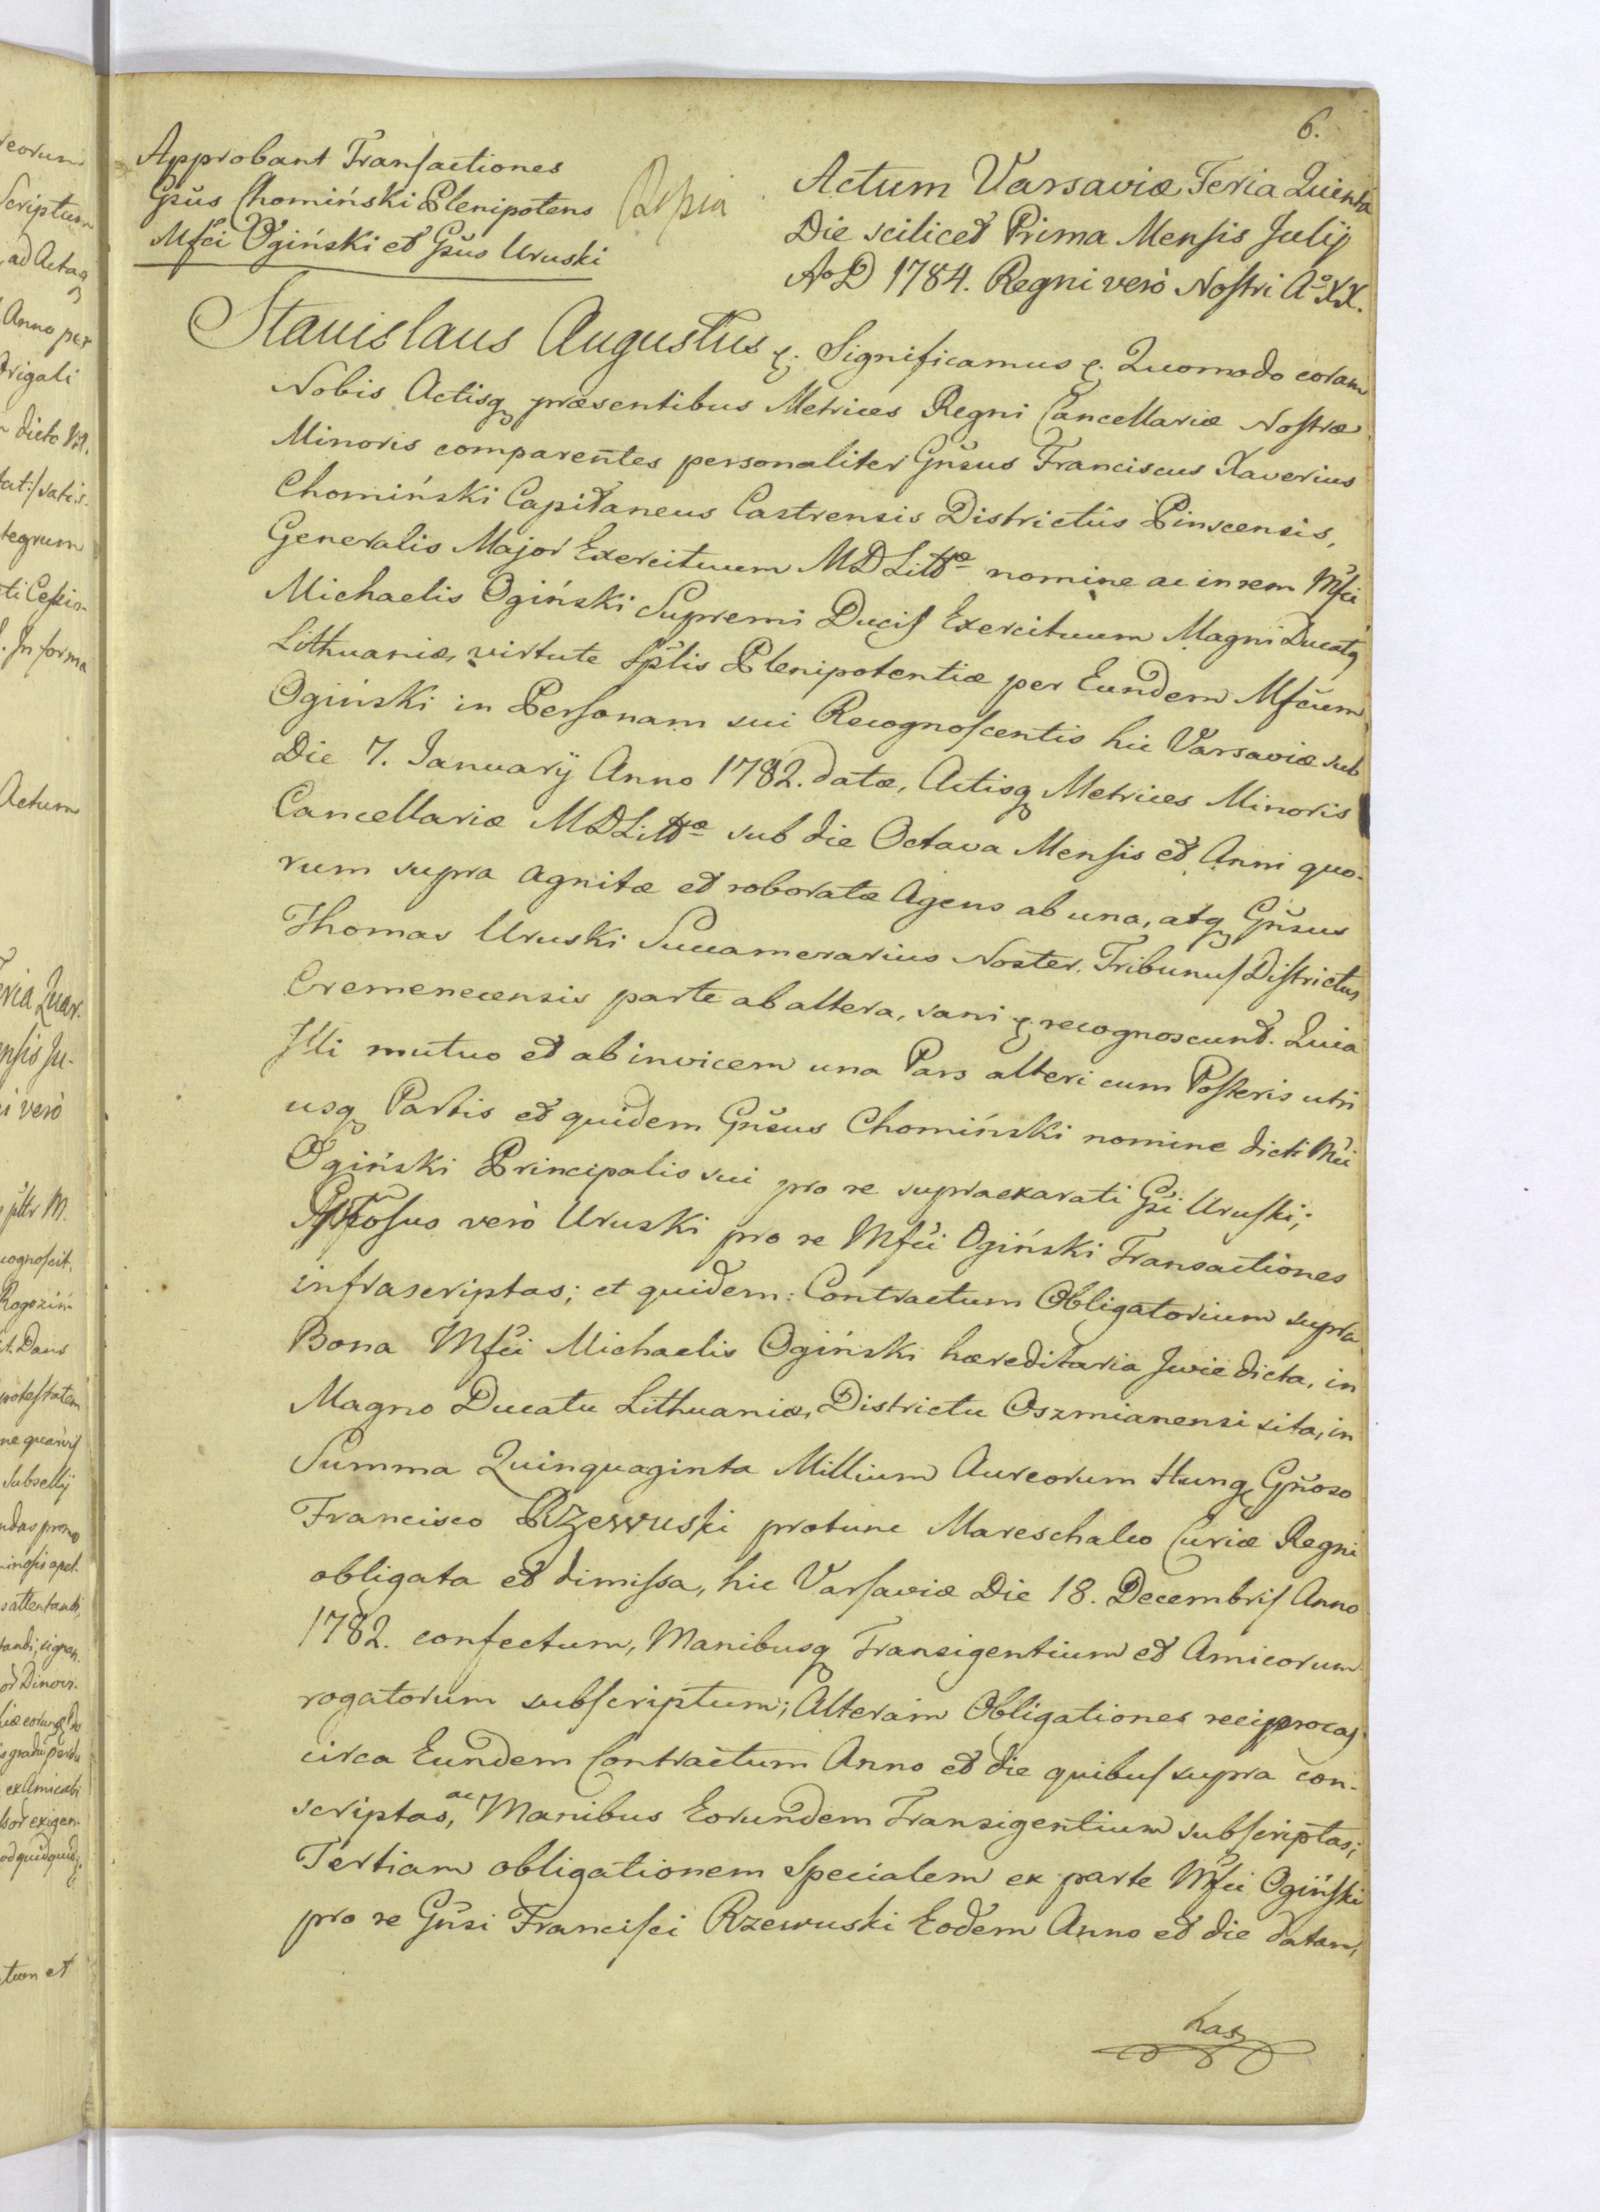 6.
Approbant Transactiones
Gsus Chomiński Plenipotens
Mfci Ogiński et Gsus Uruski
Actum Varsaviæ Feria Quinta
Die scilicet Prima Mensis Julij
AoD 1784. Regni verò Nostri Ao XX.
Stanislaus Augustus &. Significamus &. Quomodo coram
Nobis Actisq præsentibus Metrices Regni Cancellariæ Nostræ
Minoris comparentes personaliter Gnsus Franciscus Xaverius
Chomiński Capitaneus Castrensis Districtûs Pinscensis,
Generalis Major Exercituum MDLittæ nomine ac in rem Mfci
Michaelis Ogiński Supremi Ducis Exercituum Magni Ducatq
Lithuaniæ, virtute Splis Plenipotentiæ per Eundem Mfcum
Ogiński in Personam sui Recognoscentis hic Varsaviæ sub
Die 7. Januarij Anno 1782. datæ, Actisq Metrices Minoris
Cancellariæ MDLittæ sub die Octava Mensis et Anni quo-
rum supra agnitæ et roboratæ Agens ab una, atq Gnsus
Thomas Uruski Succamerarius Noster, Tribunus Districtus
Cremenecensis parte ab altera, sani &. recognoscunt. Quia
Isti mutuo et ab invicem una Pars alteri cum Posteris utri
usq Partis et quidem Gnsus Chomiński nomine dicti Mci
Ogiński Principalis sui pro re supraexarati Gsi Uruski;
verò Uruski pro re Mfci Ogiński Transactiones
infrascriptas; et quidem: Contractum Obligatorium supra
Bona Mfci Michaelis Ogiński hæreditaria Jwie dicta, in
Magno Ducatu Lithuaniæ, Districtu Oszmianensi sita, in
Summa Quinquaginta Millium Aureorum Hung Gnoso
Francisco Rzewuski protunc Mareschalco Curiæ Regni
obligata et dimissa, hic Varsaviæ Die 18. Decembris Anno
1782. confectum, Manibusq Transigentium et Amicorum
rogatorum subscriptum; Alteram Obligationes reciprocas
circa Eundem Contractum Anno et die quibus supra con-
scriptas, ac Manibus Eorundem Transigentium subscriptas;
Tertiam obligationem specialem ex parte Mfci Ogiński
pro re Gnsi Francisci Rzewuski Eodem Anno et die datam,